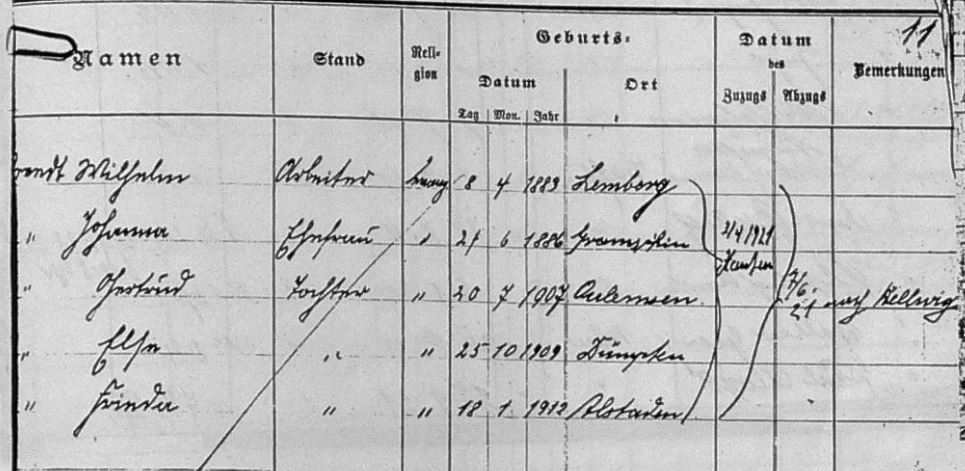 11
Namen Stand Religion Geburts- Datum des Bemerkungen
Datum Ort Zuzugs Abzugs
Tag Mon. Jahr
Wilhelm Arbeiter evang 8 4 1883 Lemborg
" Johanna Ehefrau " 21 6 1886 3/4 1921
" Gertrud Tochter " 20 7 1907 7/6. 21 nach Kellwig
" Else " " 25 10 1909 Dümpten
" Frieda " " 18 1. 1912 Alstaden